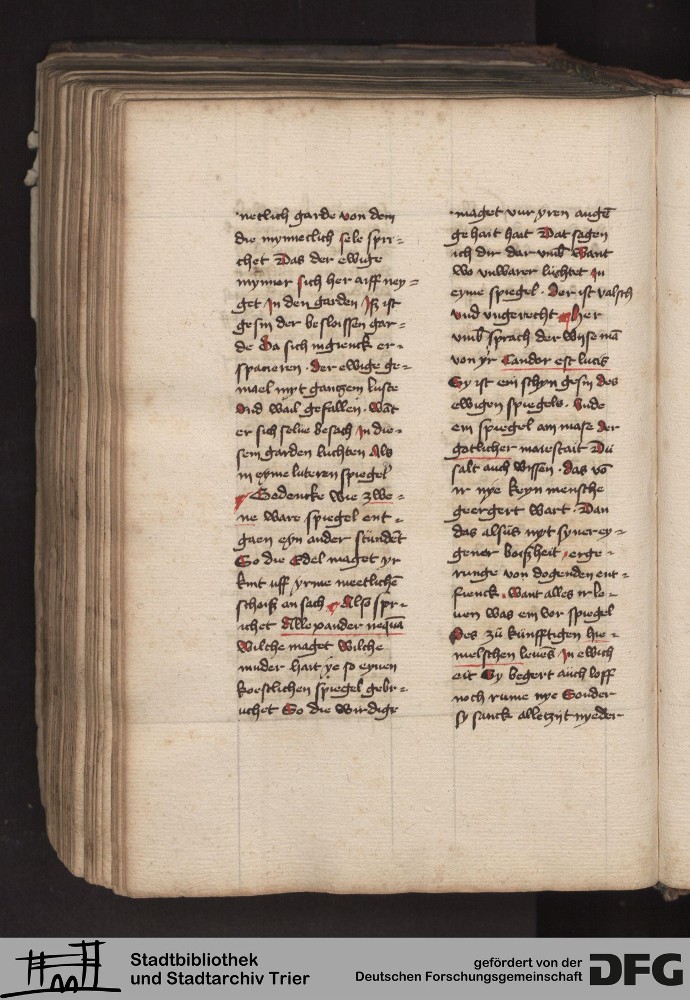 netlich garde von dem
die mynneclich sele spri=
chet Das der ewige
mynner sich her aiff ney=
get In den garden Jß ist
gesin der besloissen gar=
de Da sich ingienck er=
spacieren · der ewige ge=
mael myt gantzem luste
Vnd wail gefallen · Wāt
er sich selue besach In die=
sem garden luchten Als
in eyme luteren spiegel
Gedencke wie zwe=
ne ware spiegel ent=
gaen eyn ander stündēt
So die Edel maget yr
kint uff yrme meetlichē
schoiß an sach Also spr=
ichet Allexander nequā
Wilche maget wilche
muder hait ye so eynen
koestlichen spiegel gebr=
uchet So die wirdige
maget vur yren augē
gehait hait Dat sagen
ich dir dar vmb Want
wo vnwarer luchtet in
eyme spiegel · Der ist valsch
vnd vngerecht Her
vmb sprach der wise mā
von yr Candor est lucis
Sy ist ein schyn gesin des
ewigen spiegels · Inde
ein spiegel am mase der
gotlicher maiestait Du
salt auch wissen · das vō
ir nye keyn mensche
geergert wart · Dan
das alsus myt synerey=
gener boißheit · erge=
runge von dogenden ent=
fienck · Want alles ir le=
uen was ein vor spiegel
Des zü künfftigen hie=
melschen leuēs In ewich
eit Sy begert auch loff
noch rume nye Sonder
sy sanck alletzijt nyeder
Stadtbibliothek
und Stadtarchiv Trier
gefördert von der
Deutschen Forschungsgemeinschaft
DFG